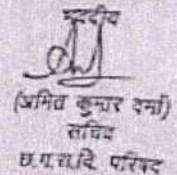 भवदीय
(अमित कुमार वर्मा)
सचिव
छ.ग.रा.वि. परिषद